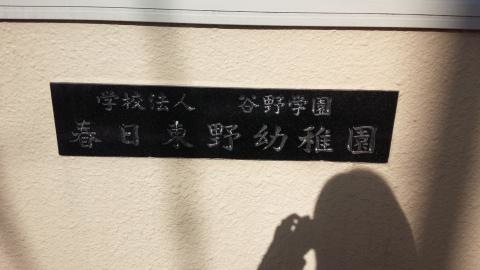 学校法人 谷野学園
春日東野幼稚園